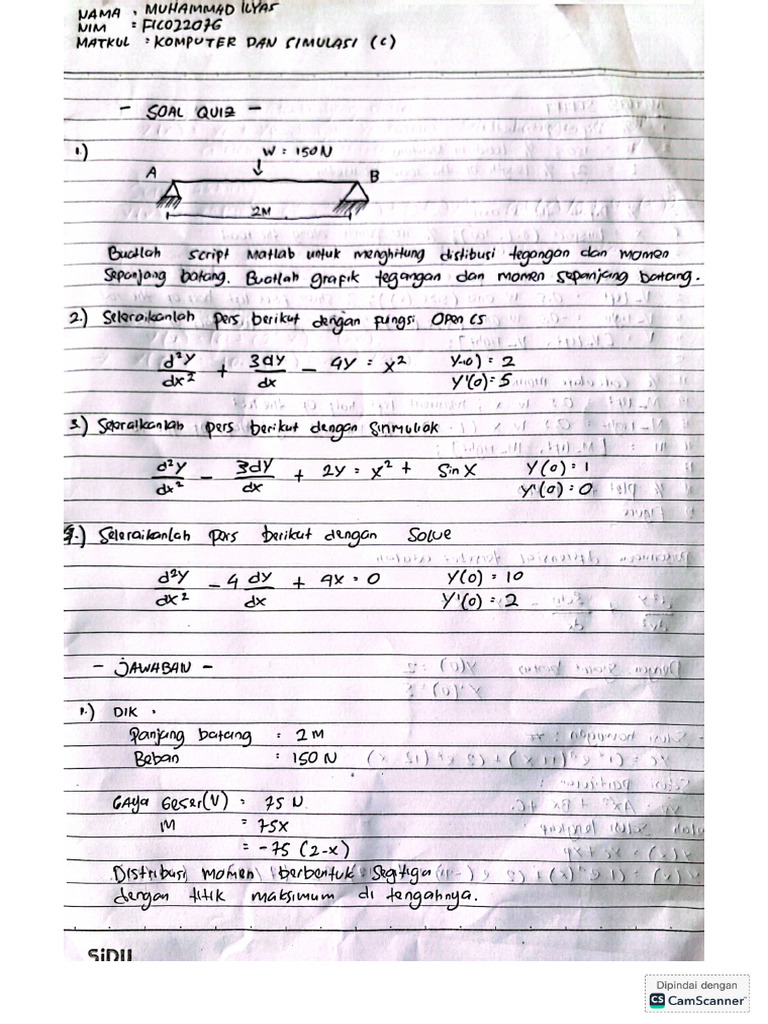 NAMA : MUHAMMAD ILYAS
NIM : F1C022076
MATKUL : KOMPUTER DAN SIMULASI (C)
- SOAL QUIZ -
1.)
W = 150 N
A
B
2M
Buatlah script Matlab untuk menghitung distibusi tegangan dan momen
sepanjang batang. Buatlah grafik tegangan dan momen sepanjang batang.
2.) Seleraikanlah pers, berikut dengan fungsi Open CS
d²y/dx² + 3dy/dx - 4y = x² y(0) = 2
y'(0) = 5
3.) pers berikut dengan
d²y/dx² - 3dy/dx + 2y = x² + Sin x y(0) = 1
y'(0) = 0
4.) Seleraikanlah pers berikut dengan Solve
d²y/dx² - 4 dy/dx + 4x = 0 y(0) = 10
y'(0) = 2
- JAWABAN -
1.) DIK :
Panjang batang : 2 M
Beban : 150 N
Gaya Geser (V) = 75 N
M = 75x
= -75 (2-x)
Distribusi momen berbentuk Segitiga
dengan titik maksimum di tengahnya.
SiDU
Dipindai dengan
CS CamScanner